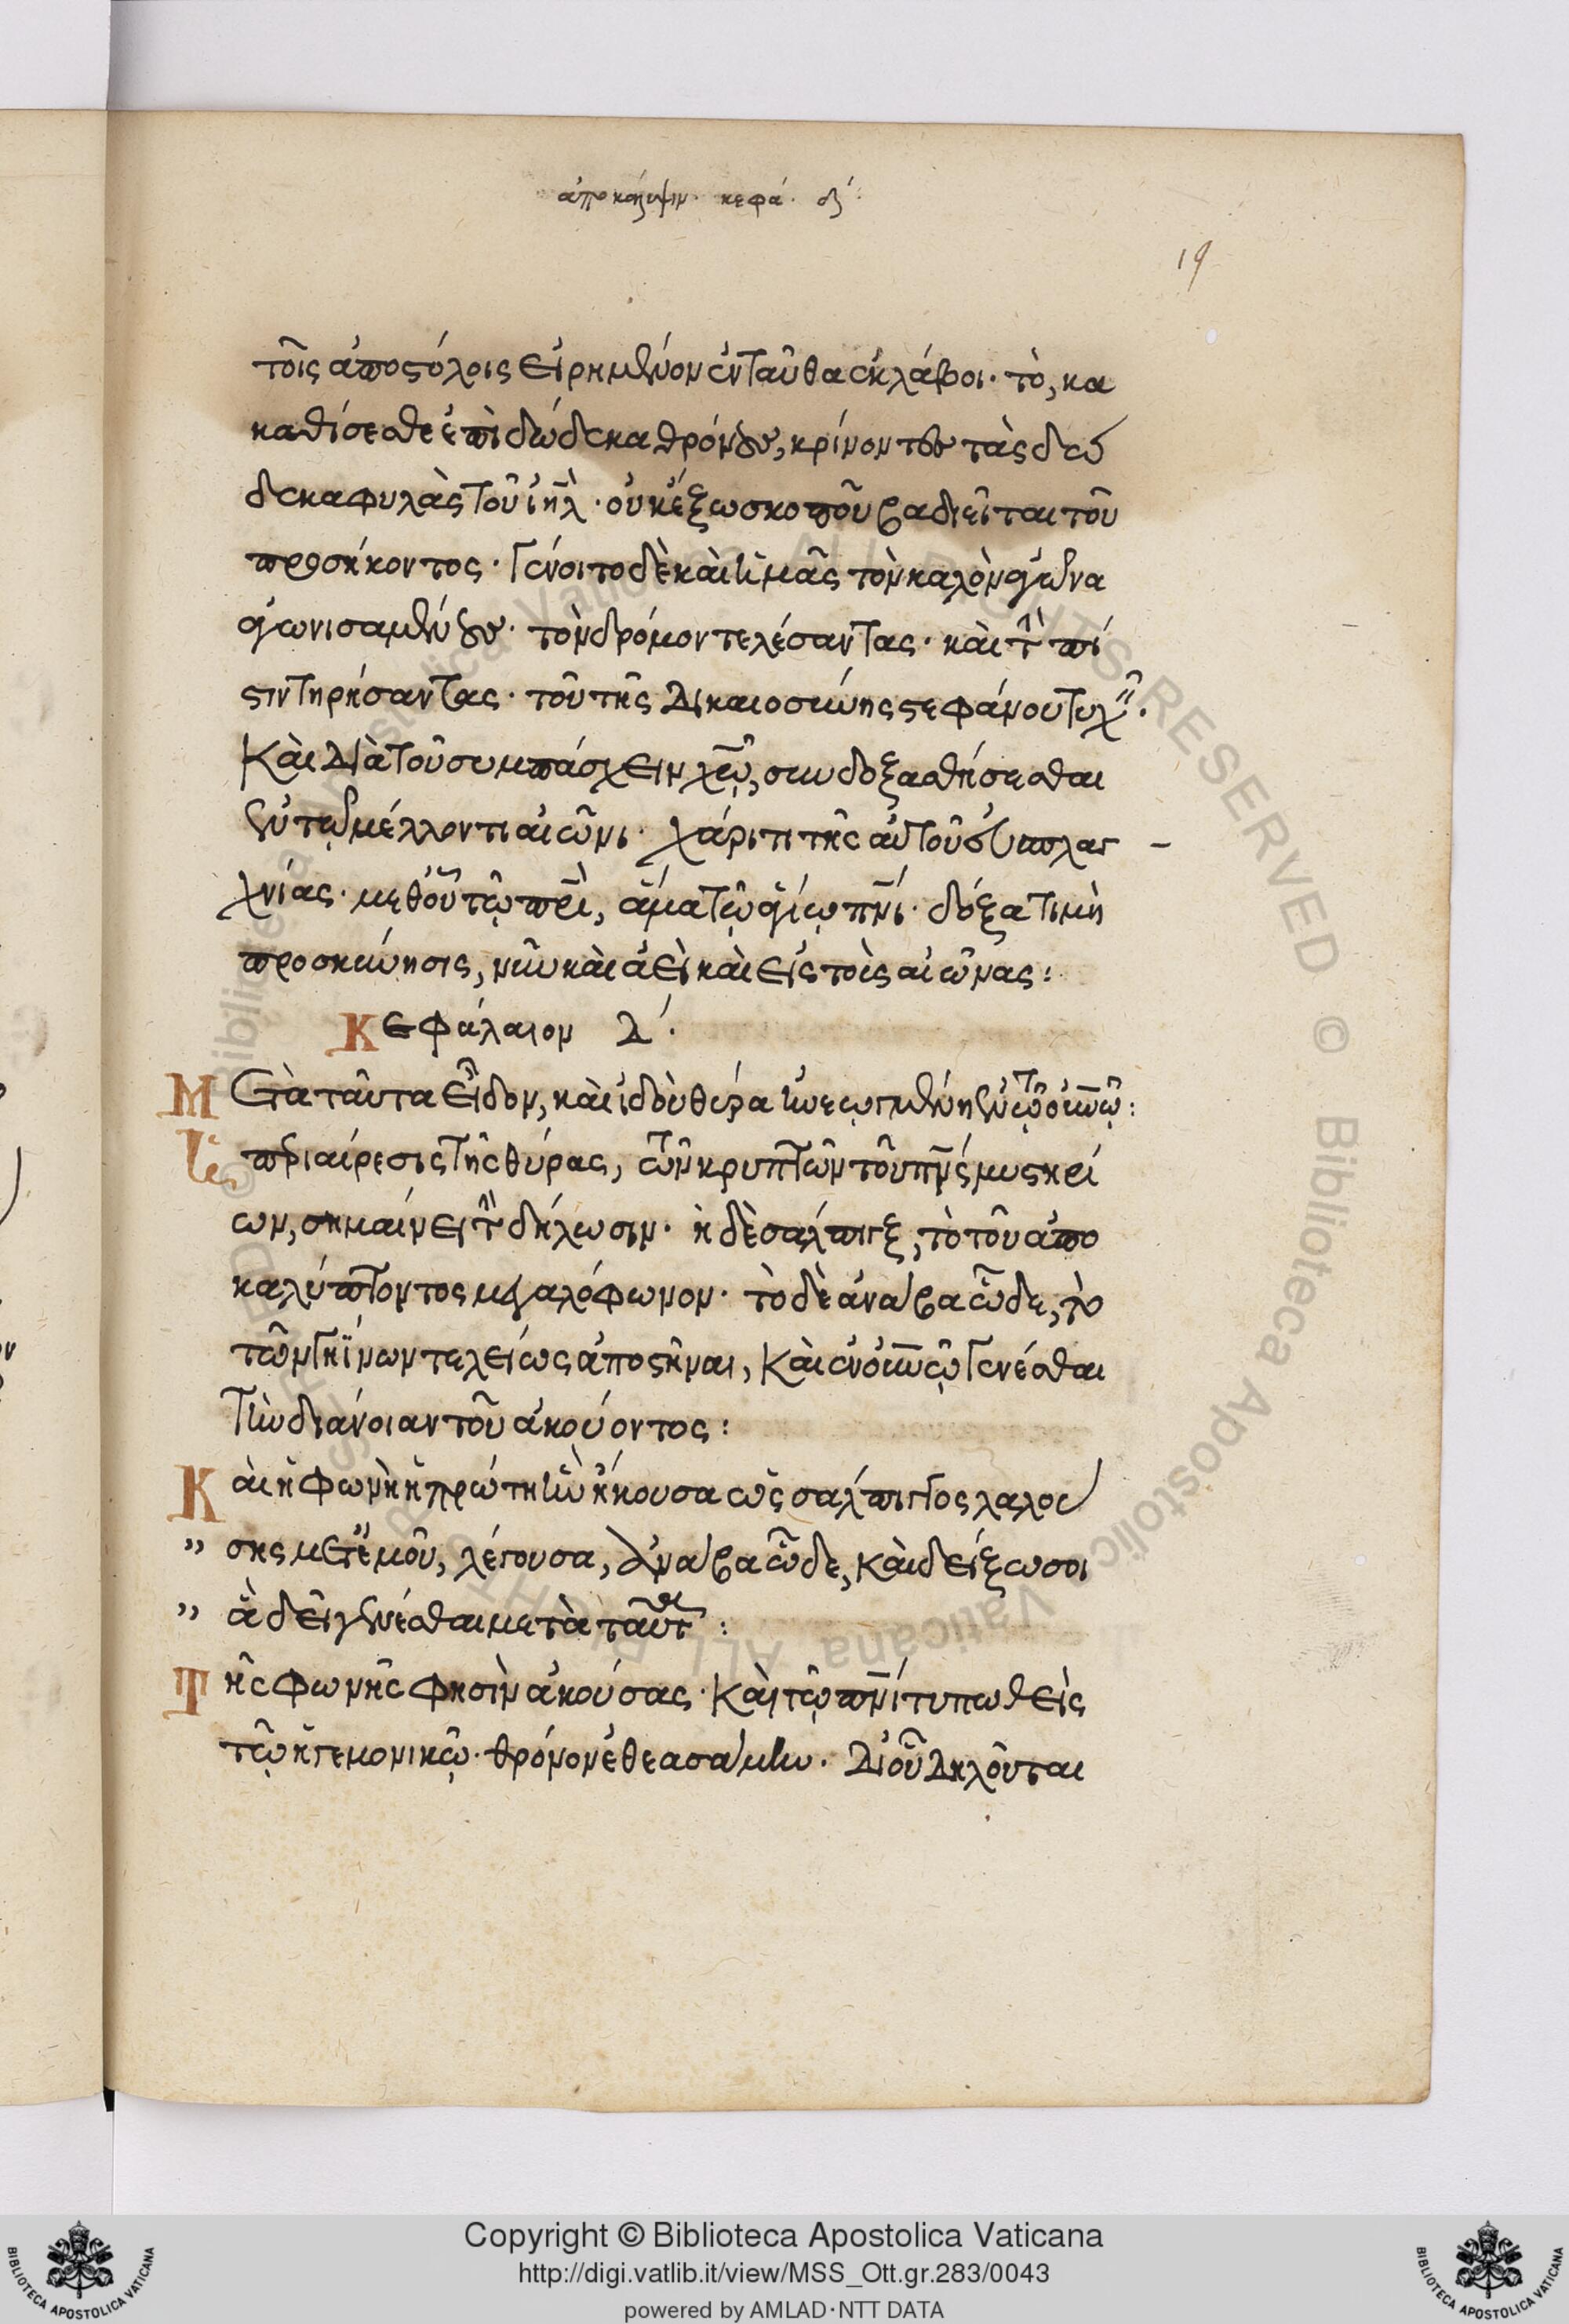 ἀποκάλυψιν. κεφά. δ΄:
19
τοῖς ἀποστόλοις εἰρημένον ἐνταῦθα ἐκλάβοι· τὸ, κα
καθίσεσθε ἐπὶ δώδεκα θρόνους, κρίνοντες τὰς δώ
δεκα φυλὰς τοῦ ἰηλ̄· οὐκ ἔξω σκοποῦ βαδιεῖται τοῦ
προσήκοντος· γένοιτο δὲ καὶ ἡμᾶς τὸν καλὸν ἀγῶνα
ἀγωνισαμένους· τὸν δρόμον τελέσαντας· καὶ τὴν πί
στιν τηρήσαντας· τοῦ τῆς δικαιοσύνης στεφάνου τυχεῖν·
Καὶ διὰ τοῦ συμπάσχειν χῶ, συνδοξασθήσεσθαι
ἐν τῷ μέλλοντι αἰῶνι· χάριτι τῆς αὐτοῦ εὐσπλαγ
χνίας· μεθ' οὗ τῷ πρὶ, ἅμα τῷ ἁγίῳ πνὶ· δόξα τιμὴ
προσκύνησις, νῦν καὶ ἀεὶ καὶ εἰς τοὺς αἰῶνας:
Κεφάλαιον Δ΄.
Μετὰ ταῦτα εἶδον, καὶ ἰδοὺ θύρα ἠνεῳγμένη ἐν τῷ οὐνῷ:
Ἡ περιαίρεσις τῆς θύρας, τῶν κρυπτῶν τοῦ πνς μυστηρί
ων, σημαίνει τὴν δήλωσιν· ἡ δὲ σάλπιγξ, τὸ τοῦ ἀπο
καλύπτοντος μεγαλόφωνον· τὸ δὲ ἀνάβα ὧδε, τὸ
τῶν γηΐνων τελείως ἀποστῆναι, Καὶ ἐν οὐνῷ γενέσθαι
τὴν διάνοιαν τοῦ ἀκούοντος:
Καὶ ἡ φωνὴ ἡ πρώτη ἣν ἤκουσα ὡς σάλπιγγος λαλού
" σης μετ' ἐμοῦ, λέγουσα, Ἀνάβα ὧδε, Καὶ δείξω σοι
" ἃ δεῖ γενέσθαι μετὰ ταῦτα:
Τῆς φωνῆς φησὶν ἀκούσας· Καὶ τῷ πνὶ τυπωθεὶς
τῷ ἡγεμονικῷ· θρόνον ἐθεασάμην. Δι' οὗ δηλοῦται
© Biblioteca Apostolica Vaticana ALL RIGHTS RESERVED © Biblioteca Apostolica Vaticana ALL RIGHTS RESERVED
Copyright © Biblioteca Apostolica Vaticana
http://digi.vatlib.it/view/MSS_Ott.gr.283/0043
powered by AMLAD·NTT DATA
BIBLIOTECA APOSTOLICA VATICANA
BIBLIOTECA APOSTOLICA VATICANA